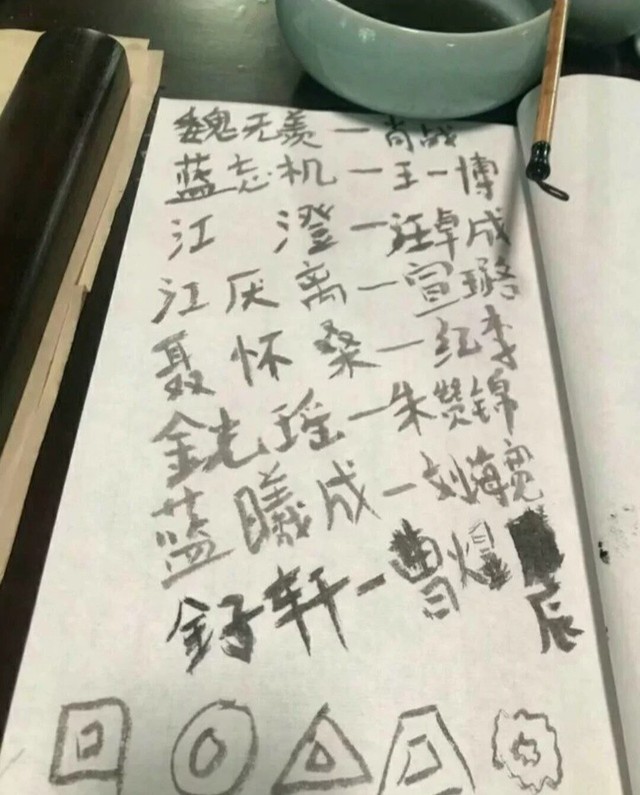 魏无羡—肖战
蓝忘机—王一博
江 澄—汪卓成
江厌离—宣璐
聂怀桑—纪李
金光瑶—朱赞锦
蓝曦成—刘海宽
金子轩—曹煜辰